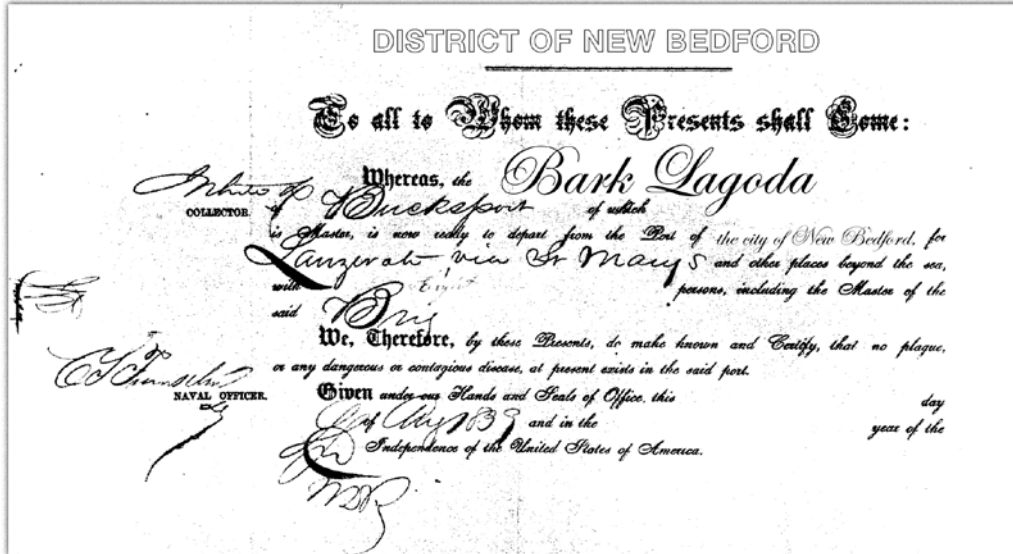 DISTRICT OF NEW BEDFORD
To all to Whom these Presents shall Come:
Whereas, the Bark Lagoda
COLLECTOR.
of Bucksport of which
is Master, is now ready to depart from the Port of the city of New Bedford, for
via St Marys and other places beyond the sea,
with persons, including the Master of the
said Brig
We, Therefore, by these Presents, do make known and Certify, that no plague,
or any dangerous or contagious disease, at present exists in the said port.
NAVAL OFFICER.
Given under our Hands and Seals of Office, this day
of Aug and in the year of the
Independence of the United States of America.